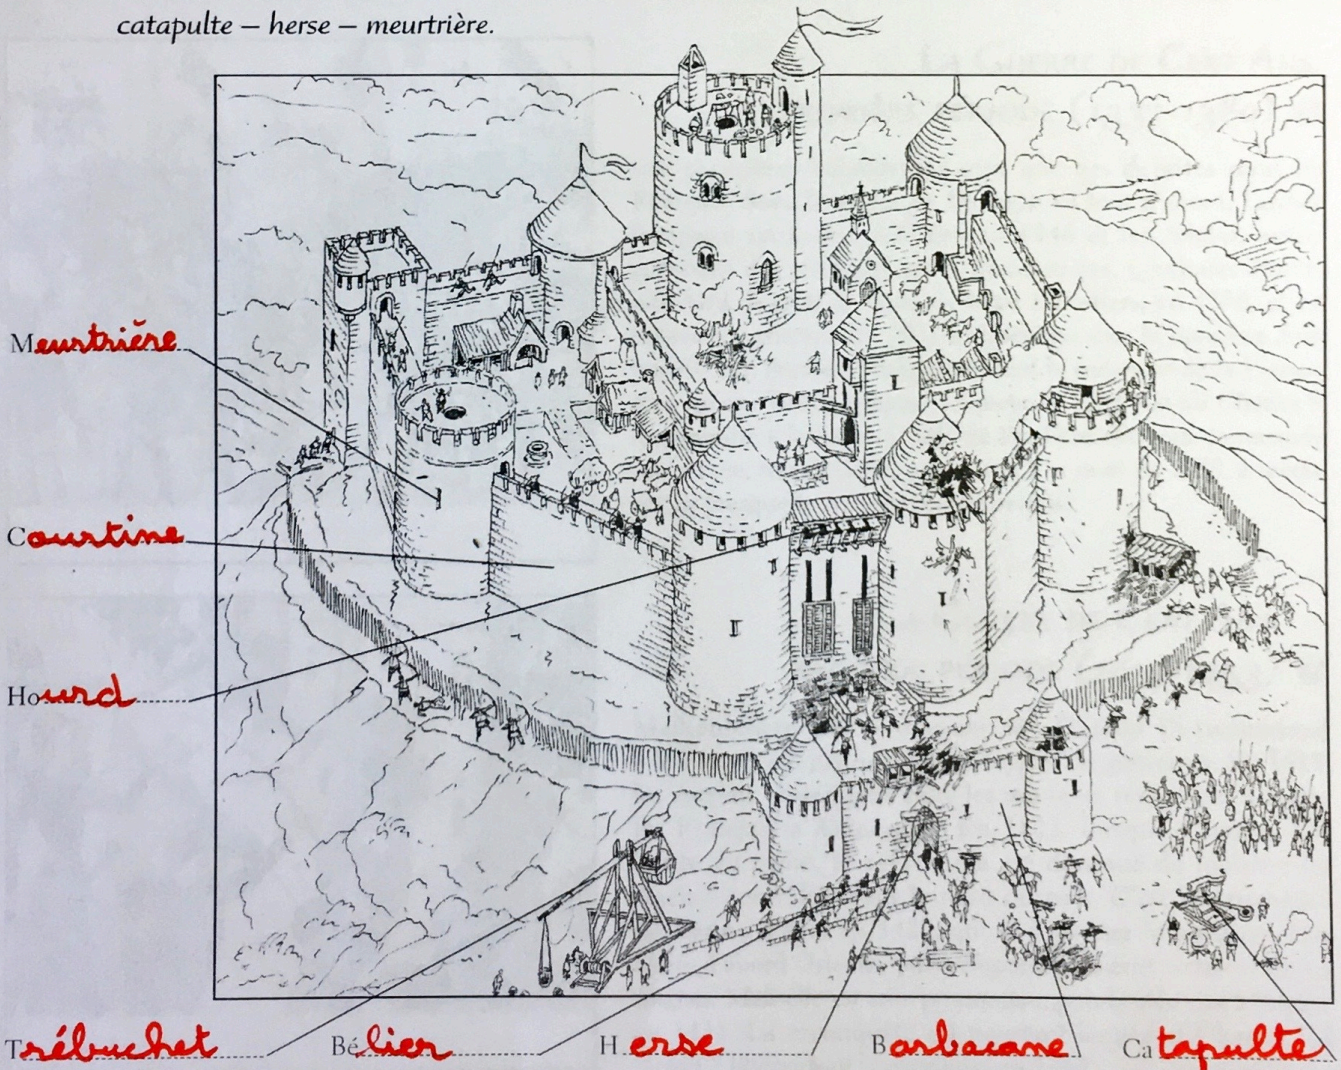 catapulte – herse – meurtrière.
Meurtrière
Courtine
Hourd
Trébuchet Bélier Herse Barbacane Catapulte